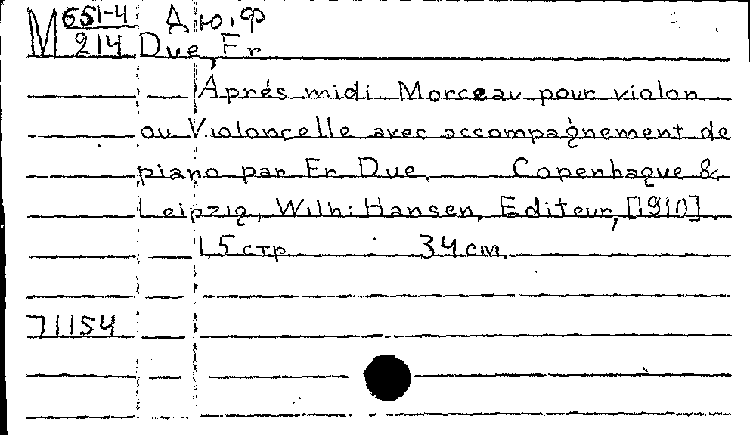 М 651-4 Дю, Ф
214 Due, Fr
Aprés midi Morceau pour violon
ou Violoncelle avec accompagnement de
piano par Fr Due. Copenhague &
Leipzig, Wilh: Hansen, Editeur, [1910].
15 стр 34 см.
71154